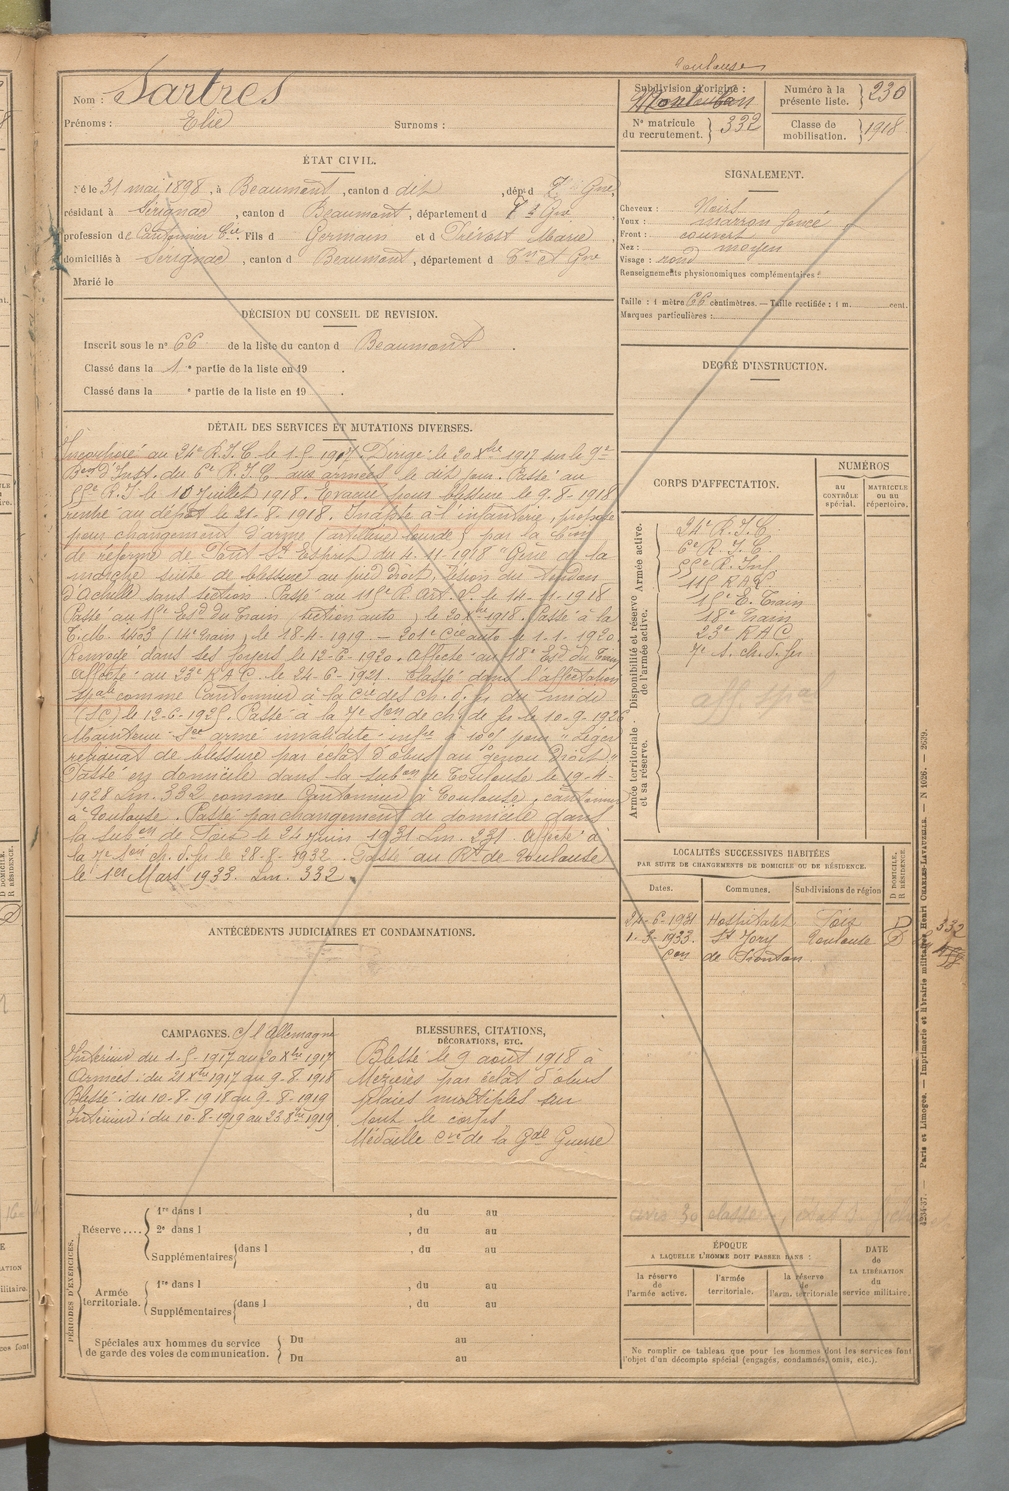 Toulouse
Nom : Sartres
Prénoms : Elie Surnoms :
Subdivision d'origine : Montauban
Numéro à la présente liste. 230
N° matricule du recrutement. 332
Classe de mobilisation. 1918
ÉTAT CIVIL.
Né le 31 mai 1898, à Beaumont, canton d dit, dép. d T & Gne,
résidant à Sérignac, canton d Beaumont, département d T & Gne
profession de Cantonnier Cie, Fils d Germain et d Prévost Marie,
domiciliés à Serignac, canton d Beaumont, département d Tn et Gne
Marié le
SIGNALEMENT.
Cheveux : Noirs
Yeux : marron foncé
Front : couvert
Nez : moyen
Visage : rond
Renseignements physionomiques complémentaires :
Taille : 1 mètre 66 centimètres. — Taille rectifiée : 1 m. cent.
Marques particulières :
DÉCISION DU CONSEIL DE REVISION.
Inscrit sous le n° 66 de la liste du canton d Beaumont.
Classé dans la 1e partie de la liste en 19 .
Classé dans la e partie de la liste en 19 .
DEGRÉ D'INSTRUCTION.
DÉTAIL DES SERVICES ET MUTATIONS DIVERSES.
Incorporé au 24e R.I.C. le 1-5-1917. Dirigé le 20 Xbre 1917 sur le 9e
Bon d'Inst. du 6e R.I.C. aux armées le dit jour. Passé au
55e R.I. le 10 Juillet 1918. Evacué pour blessure le 9-8-1918
rentré au dépôt le 21-8-1918. Inapte à l'infanterie, proposé
pour changement d'arme (artillerie lourde) par la Cion
de réforme de Pont St Esprit du 4-11-1918 "Gêne de la
marche suite de blessure au pied droit, lésion du tendon
d'Achille sans section. Passé au 115e R. Art. Ld. le 14-11-1918
Passé au 15e Esd du Train (section auto) le 20 Xbre 1918. Passé à la
T.M. 1403 (14e train) le 18-4-1919 — 201e Cie auto le 1-1-1920.
Renvoyé dans ses foyers le 12-6-1920. Affecté au 18e Esd. du Train
Affecté au 23e R.A.C. le 24-6-1921. Classé dans l'affectation
spale comme Cantonnier à la Cie des ch. d. fr du midi
(SC) le 12-6-1925. Passé à la 7e Son de ch. de fr le 10-9-1926
Maintenu Sce armé invalidité infre à 10% pour "Léger
reliquat de blessure par éclat d'obus au genou droit."
Passé en domicile dans la subon de Toulouse le 19-4-
1928 Lm. 332 comme Cantonnier à Toulouse, cantonnier
à Toulouse. Passé par changement de domicile dans
la subon de Foix le 24 Juin 1931 Lm. 231. Affecté à
la 7e Son ch. d. fr le 28-8-1932. Passé au Rt de Toulouse
le 1er Mars 1933. Lm. 332.
CORPS D'AFFECTATION.
NUMÉROS
AU CONTRÔLE spécial.
MATRICULE OU AU répertoire.
Armée active.
Disponibilité et réserve de l'armée active.
Armée territoriale et sa réserve.
24e R.I.C.
6e R.I.C.
55e R. Inf
115 RAL
15e E. Train
18e Train
23e RAC
7e S. ch. d. fer
aff. spale
LOCALITÉS SUCCESSIVES HABITÉES
PAR SUITE DE CHANGEMENTS DE DOMICILE OU DE RÉSIDENCE.
Dates. Communes. Subdivisions de région
D DOMICILE, R RÉSIDENCE.
24-6-1931 Hospitalet Foix D
1-3-1933. St Jory Toulouse D 332
Con de Fronton
ANTÉCÉDENTS JUDICIAIRES ET CONDAMNATIONS.
CAMPAGNES. c/ l'Allemagne
Intérieur du 1-5-1917 au 20 Xbre 1917
Armées : du 21 Xbre 1917 au 9-8-1918
Blessé : du 10-8-1918 au 9-8-1919
Intérieur : du 10-8-1919 au 23 8bre 1919
BLESSURES, CITATIONS,
DÉCORATIONS, ETC.
Blessé le 9 août 1918 à
Mézières par éclat d'obus
plaies multiples sur
tout le corps
Médaille Cve de la Gde Guerre
PÉRIODES D'EXERCICES.
Réserve....
1re dans l , du au
2e dans l , du au
Supplémentaires dans l , du au
Armée territoriale.
1re dans l , du au
Supplémentaires dans l , du au
Spéciales aux hommes du service de garde des voies de communication.
Du au
Du au
ÉPOQUE
A LAQUELLE L'HOMME DOIT PASSER DANS :
la réserve de l'armée active.
l'armée territoriale.
la réserve de l'arm. territoriale
DATE de LA LIBÉRATION du service militaire.
Ne remplir ce tableau que pour les hommes dont les services font
l'objet d'un décompte spécial (engagés, condamnés, omis, etc.).
1234-37. — Paris et Limoges. — Imprimerie et librairie militaires Henri CHARLES-LAVAUZELLE. — N 1026. — 2639.